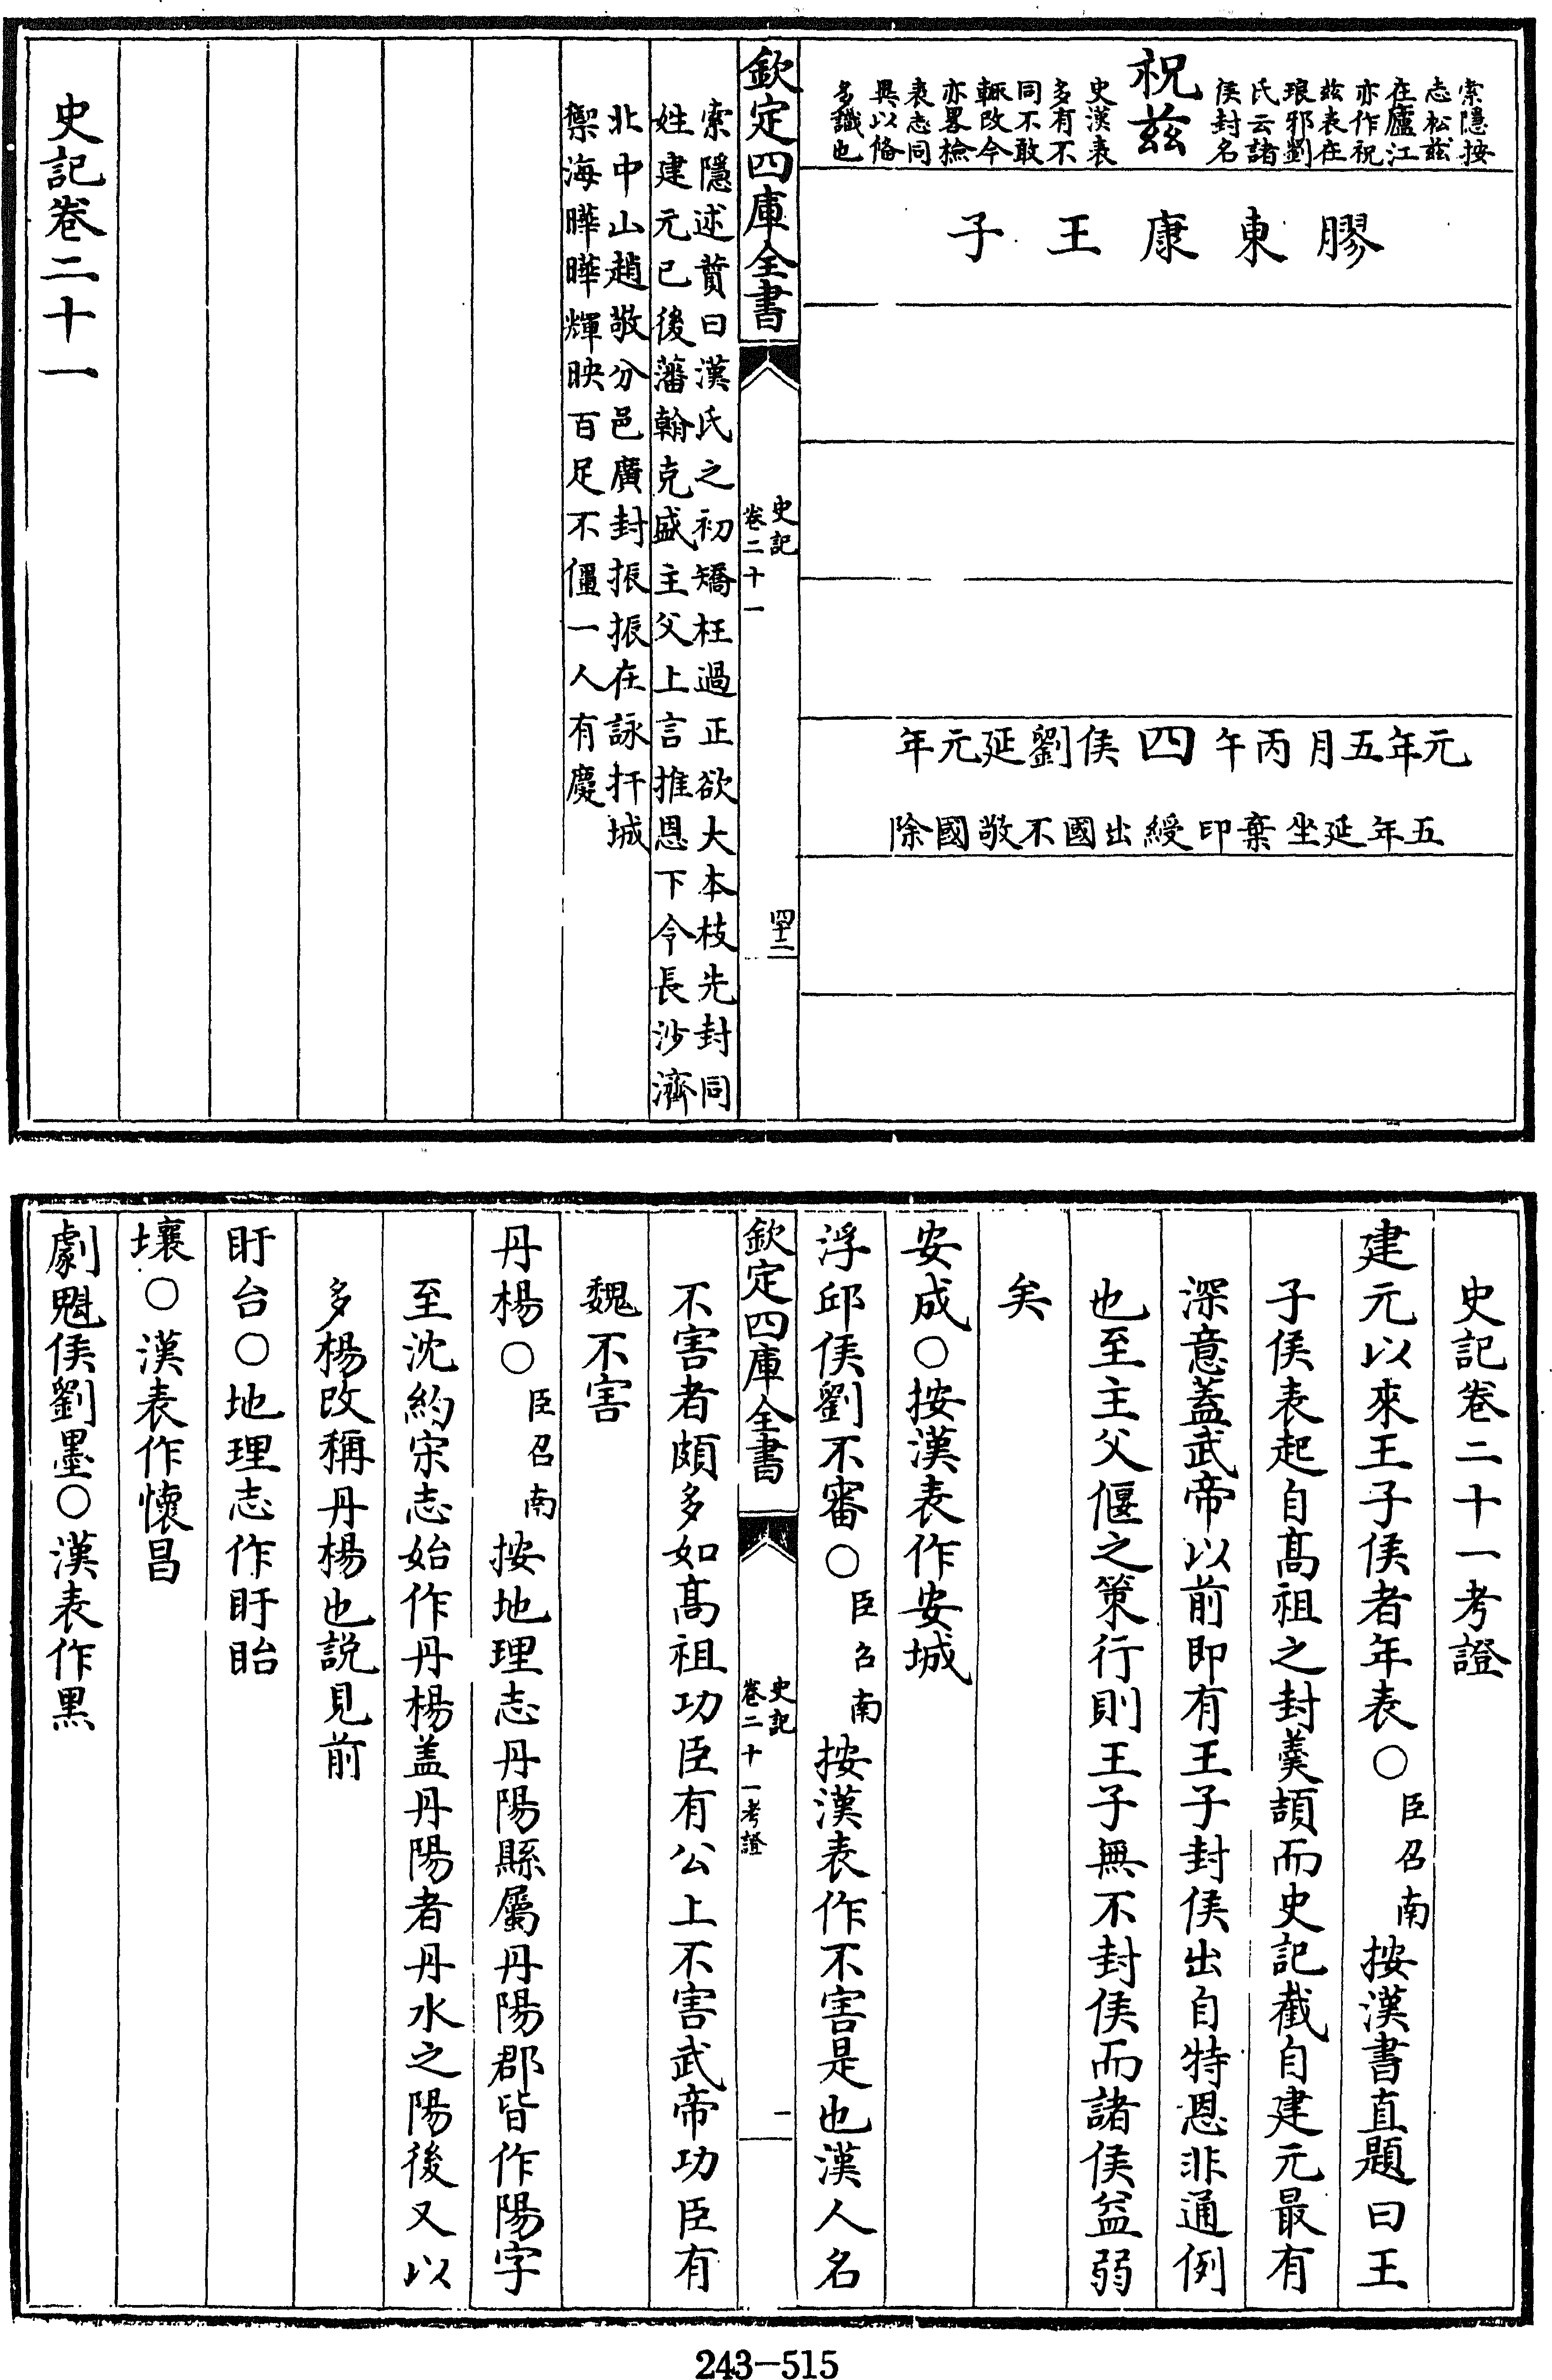 索隱按
志松兹
在廬江
亦作祝
兹表在
琅邪劉
氏云諸
侯封名
祝兹
史漢表
多有不
同不敢
輒改今
亦畧檢
表志同
異以俻
多識也
膠東康王子
元年五月丙午四侯劉延元年
五年延坐棄印綬出國不敬國除
欽定四庫全書
史記
卷二十一
四十二
索隱述賛曰漢氏之初矯枉過正欲大本枝先封同
姓建元已後藩翰克盛主父上言推恩下令長沙濟
北中山趙敬分邑廣封振振在詠扞城
禦海曄曄輝映百足不僵一人有慶
史記卷二十一
史記卷二十一考證
建元以來王子侯者年表○臣召南按漢書直題曰王
子侯表起自髙祖之封羹頡而史記截自建元最有
深意蓋武帝以前即有王子封侯出自特恩非通例
也至主父偃之策行則王子無不封侯而諸侯益弱
矣
安成○按漢表作安城
浮邱侯劉不審○臣召南按漢表作不害是也漢人名
欽定四庫全書
史記
卷二十一考證
一
不害者頗多如髙祖功臣有公上不害武帝功臣有
魏不害
丹楊○臣召南按地理志丹陽縣屬丹陽郡皆作陽字
至沈約宋志始作丹楊盖丹陽者丹水之陽後又以
多楊改稱丹楊也説見前
盱台○地理志作盱眙
壤○漢表作懷昌
劇魁侯劉墨○漢表作黒
243-515